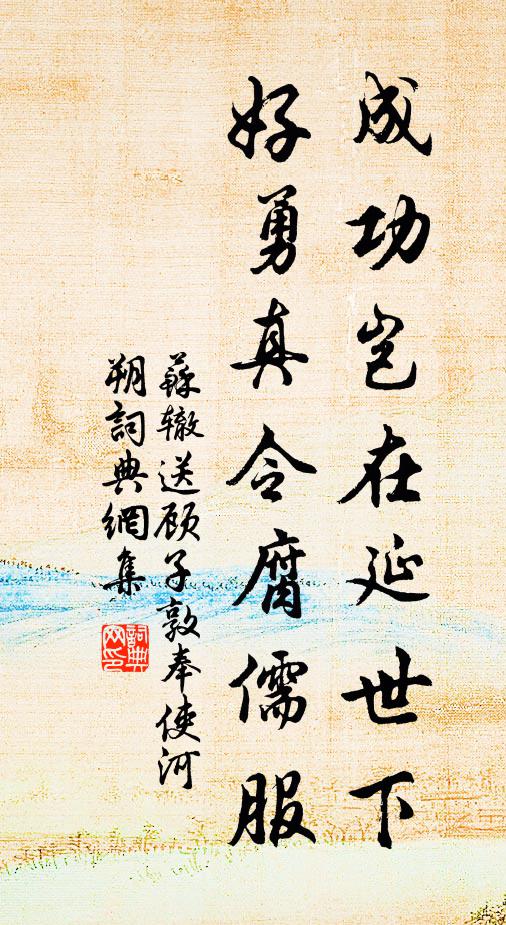 成功岂在延世下
好勇真令腐儒服
蘇辙送顾子敦奉使河
朔詞典網集
詞典
网印